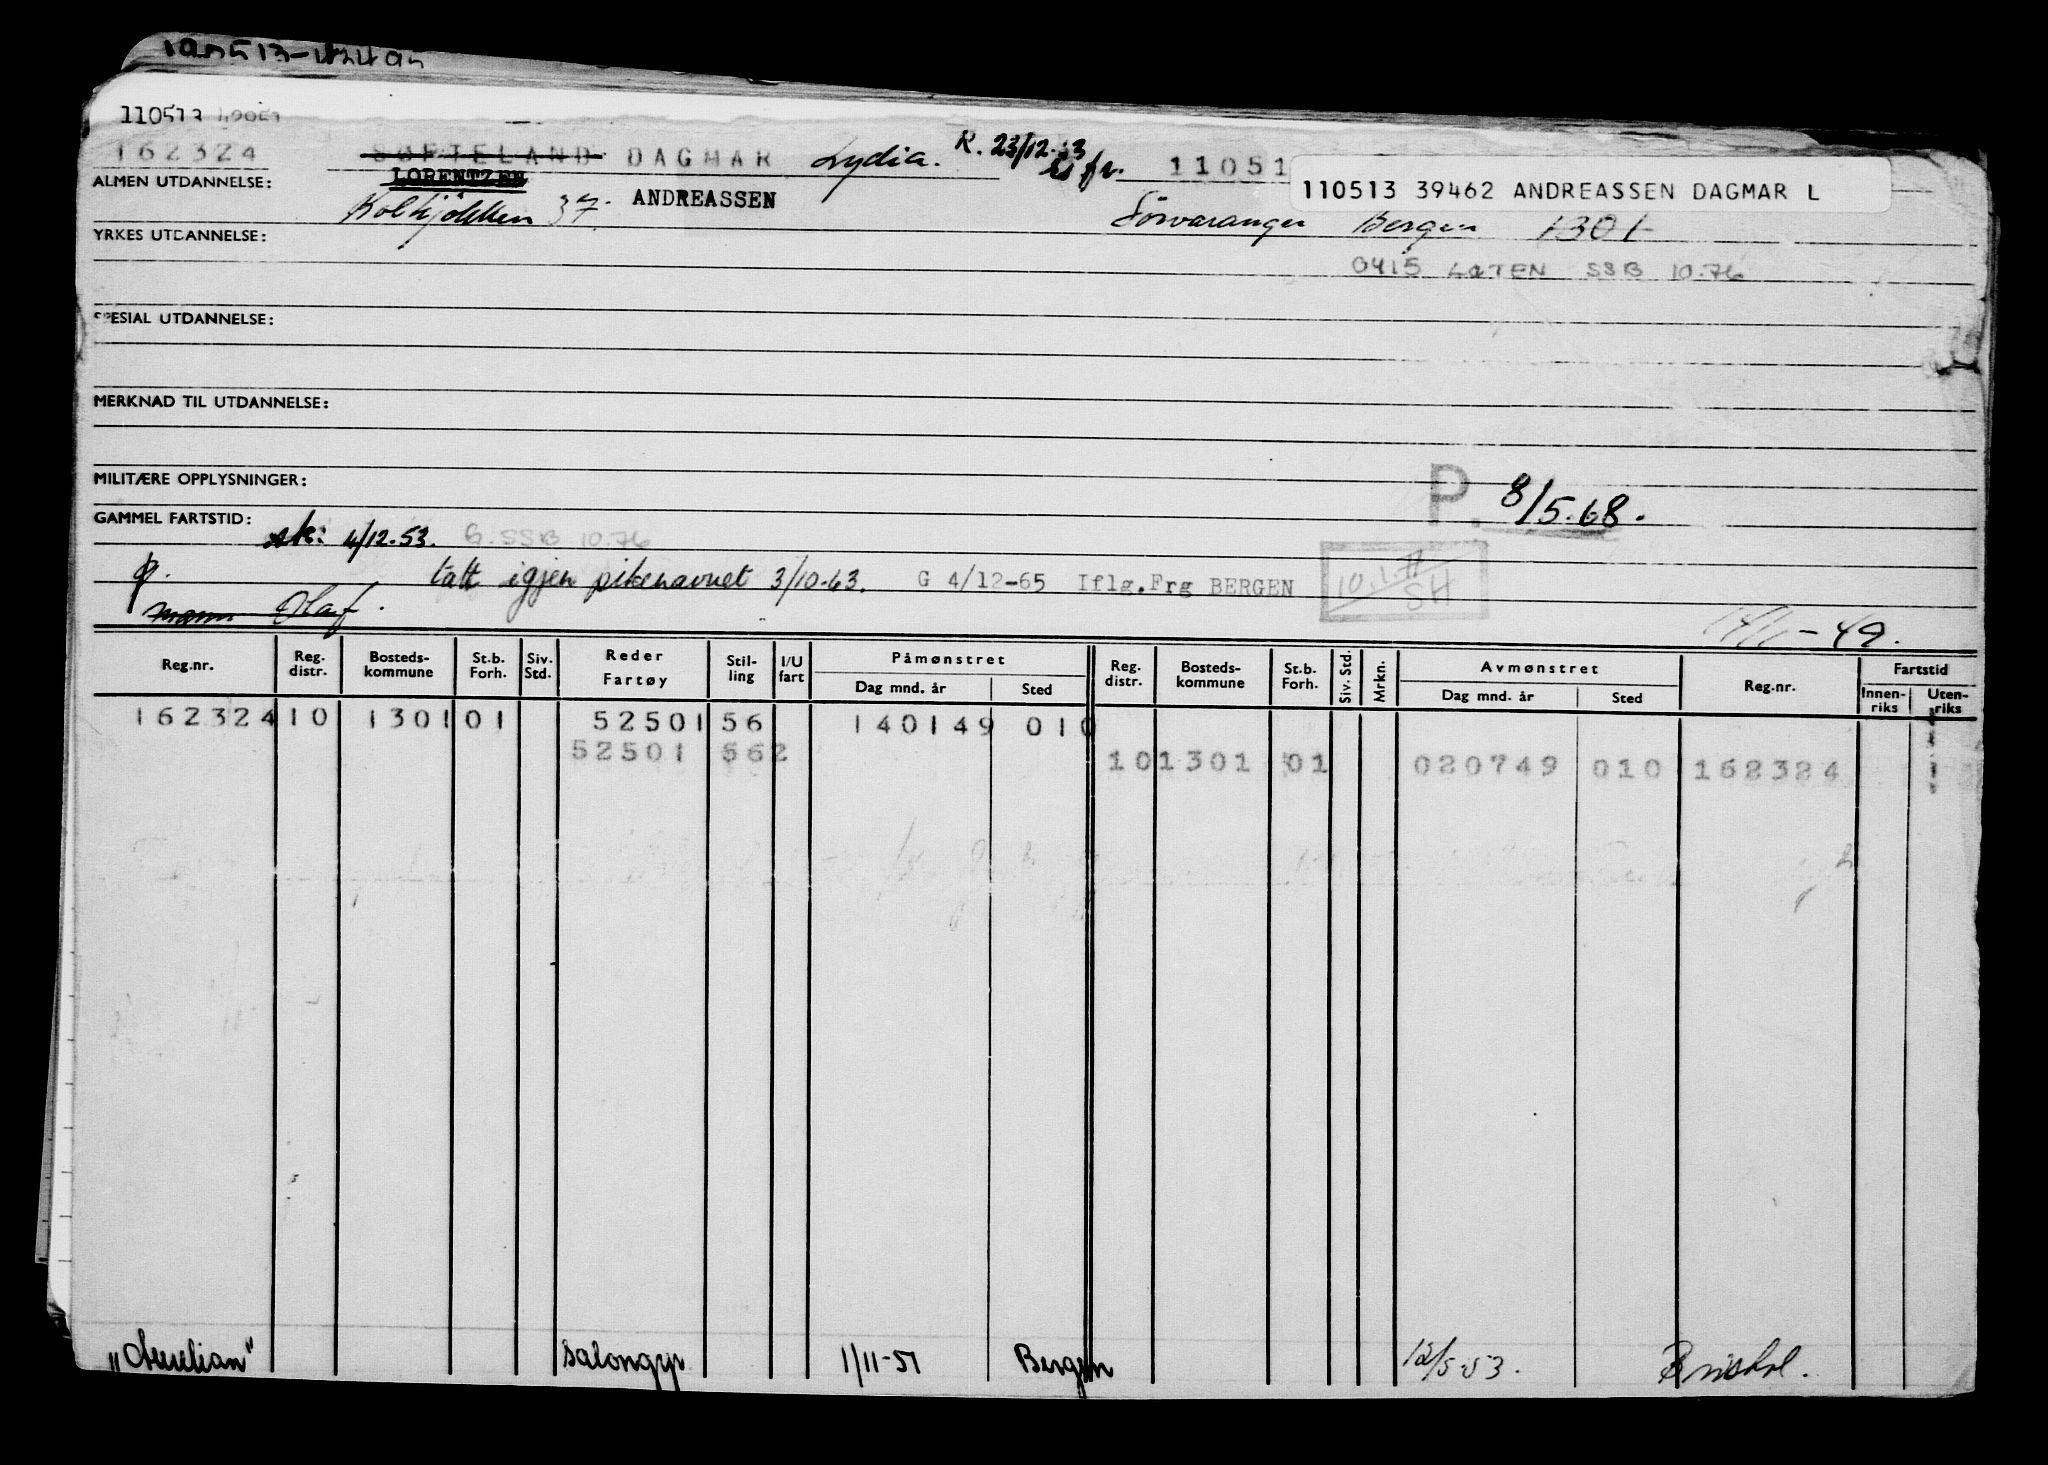 110513
162324 SØFTELAND DAGMAR Lydia. R. 23/12-53 fr. 11051
110513 39462 ANDREASSEN DAGMAR L
ALMEN UTDANNELSE: LORENTZEN
Kolkjökken 37. ANDREASSEN Sörvaranger Bergen 1301
YRKES UTDANNELSE:
0415 LØTEN SSB 10.76
SPESIAL UTDANNELSE:
MERKNAD TIL UTDANNELSE:
MILITÆRE OPPLYSNINGER:
P. 8/5.68.
GAMMEL FARTSTID:
sk: 4/12-53. G. SSB 10.76
p. tatt igjen pikenavnet 3/10-63. G 4/12-65 Iflg.Frg BERGEN
SH
mann Olaf. -49.
Reg.nr. Reg. distr. Bosteds-kommune St.b. Forh. Siv. Std. Reder Fartøy Stil-ling I/U fart Påmønstret Dag mnd. år Sted Reg. distr. Bosteds-kommune St.b. Forh. Siv. Std. Mrkn. Avmønstret Dag mnd. år Sted Reg.nr. Fartstid Innen-riks Uten-riks
162324 10 1301 01 52501 56 140149 010
52501 562 10 1301 01 020749 010 162324
"Aurelian" salongpr 1/11-51 Bergen 12/5-53. Bristol.